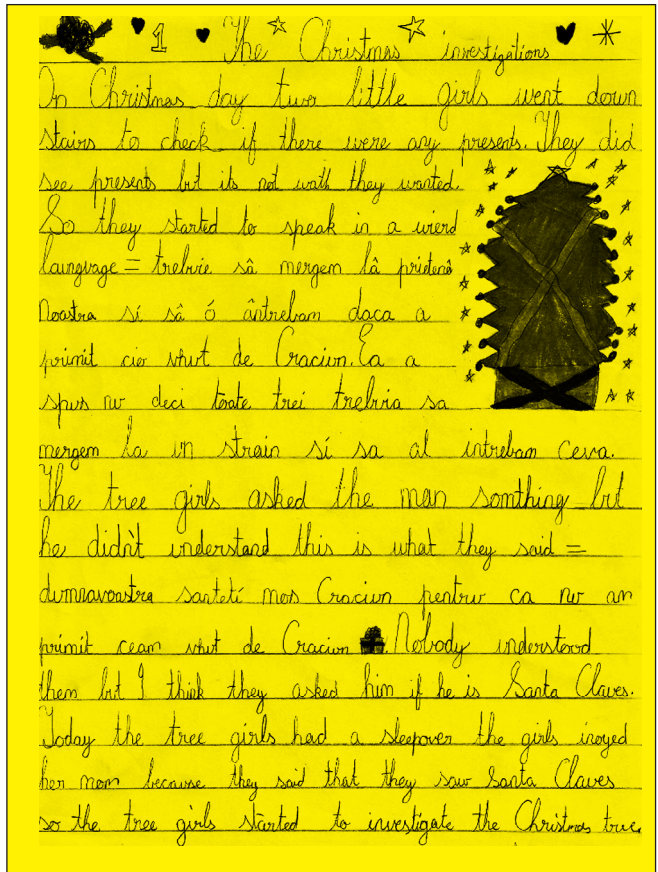 1 The Christmas investigations
On Christmas day two little girls went down
stairs to check if there were any presents. They did
see presents but its not wath they wanted.
So they started to speak in a wierd
laungvage = trebvie sâ mergem lâ prietenâ
Noastra sí sâ ó ântrebam daca a
primit cio vrut de Craciun. Ea a
spus nu deci toate trei trebvia sa
mergem la un strain sí sa al intrebam ceva.
The tree girls asked the man somthing but
he didn't understand this is what they said =
dumnavoastra santetí mos Craciun pentru ca nu am
primit ceam vrut de Craciun. Nobody understood
them but I think they asked him if he is Santa Claves.
Today the tree girls had a sleepover the girls inoyed
her mom because they said that they saw Santa Claves
so the tree girls started to investigate the Christmas true.